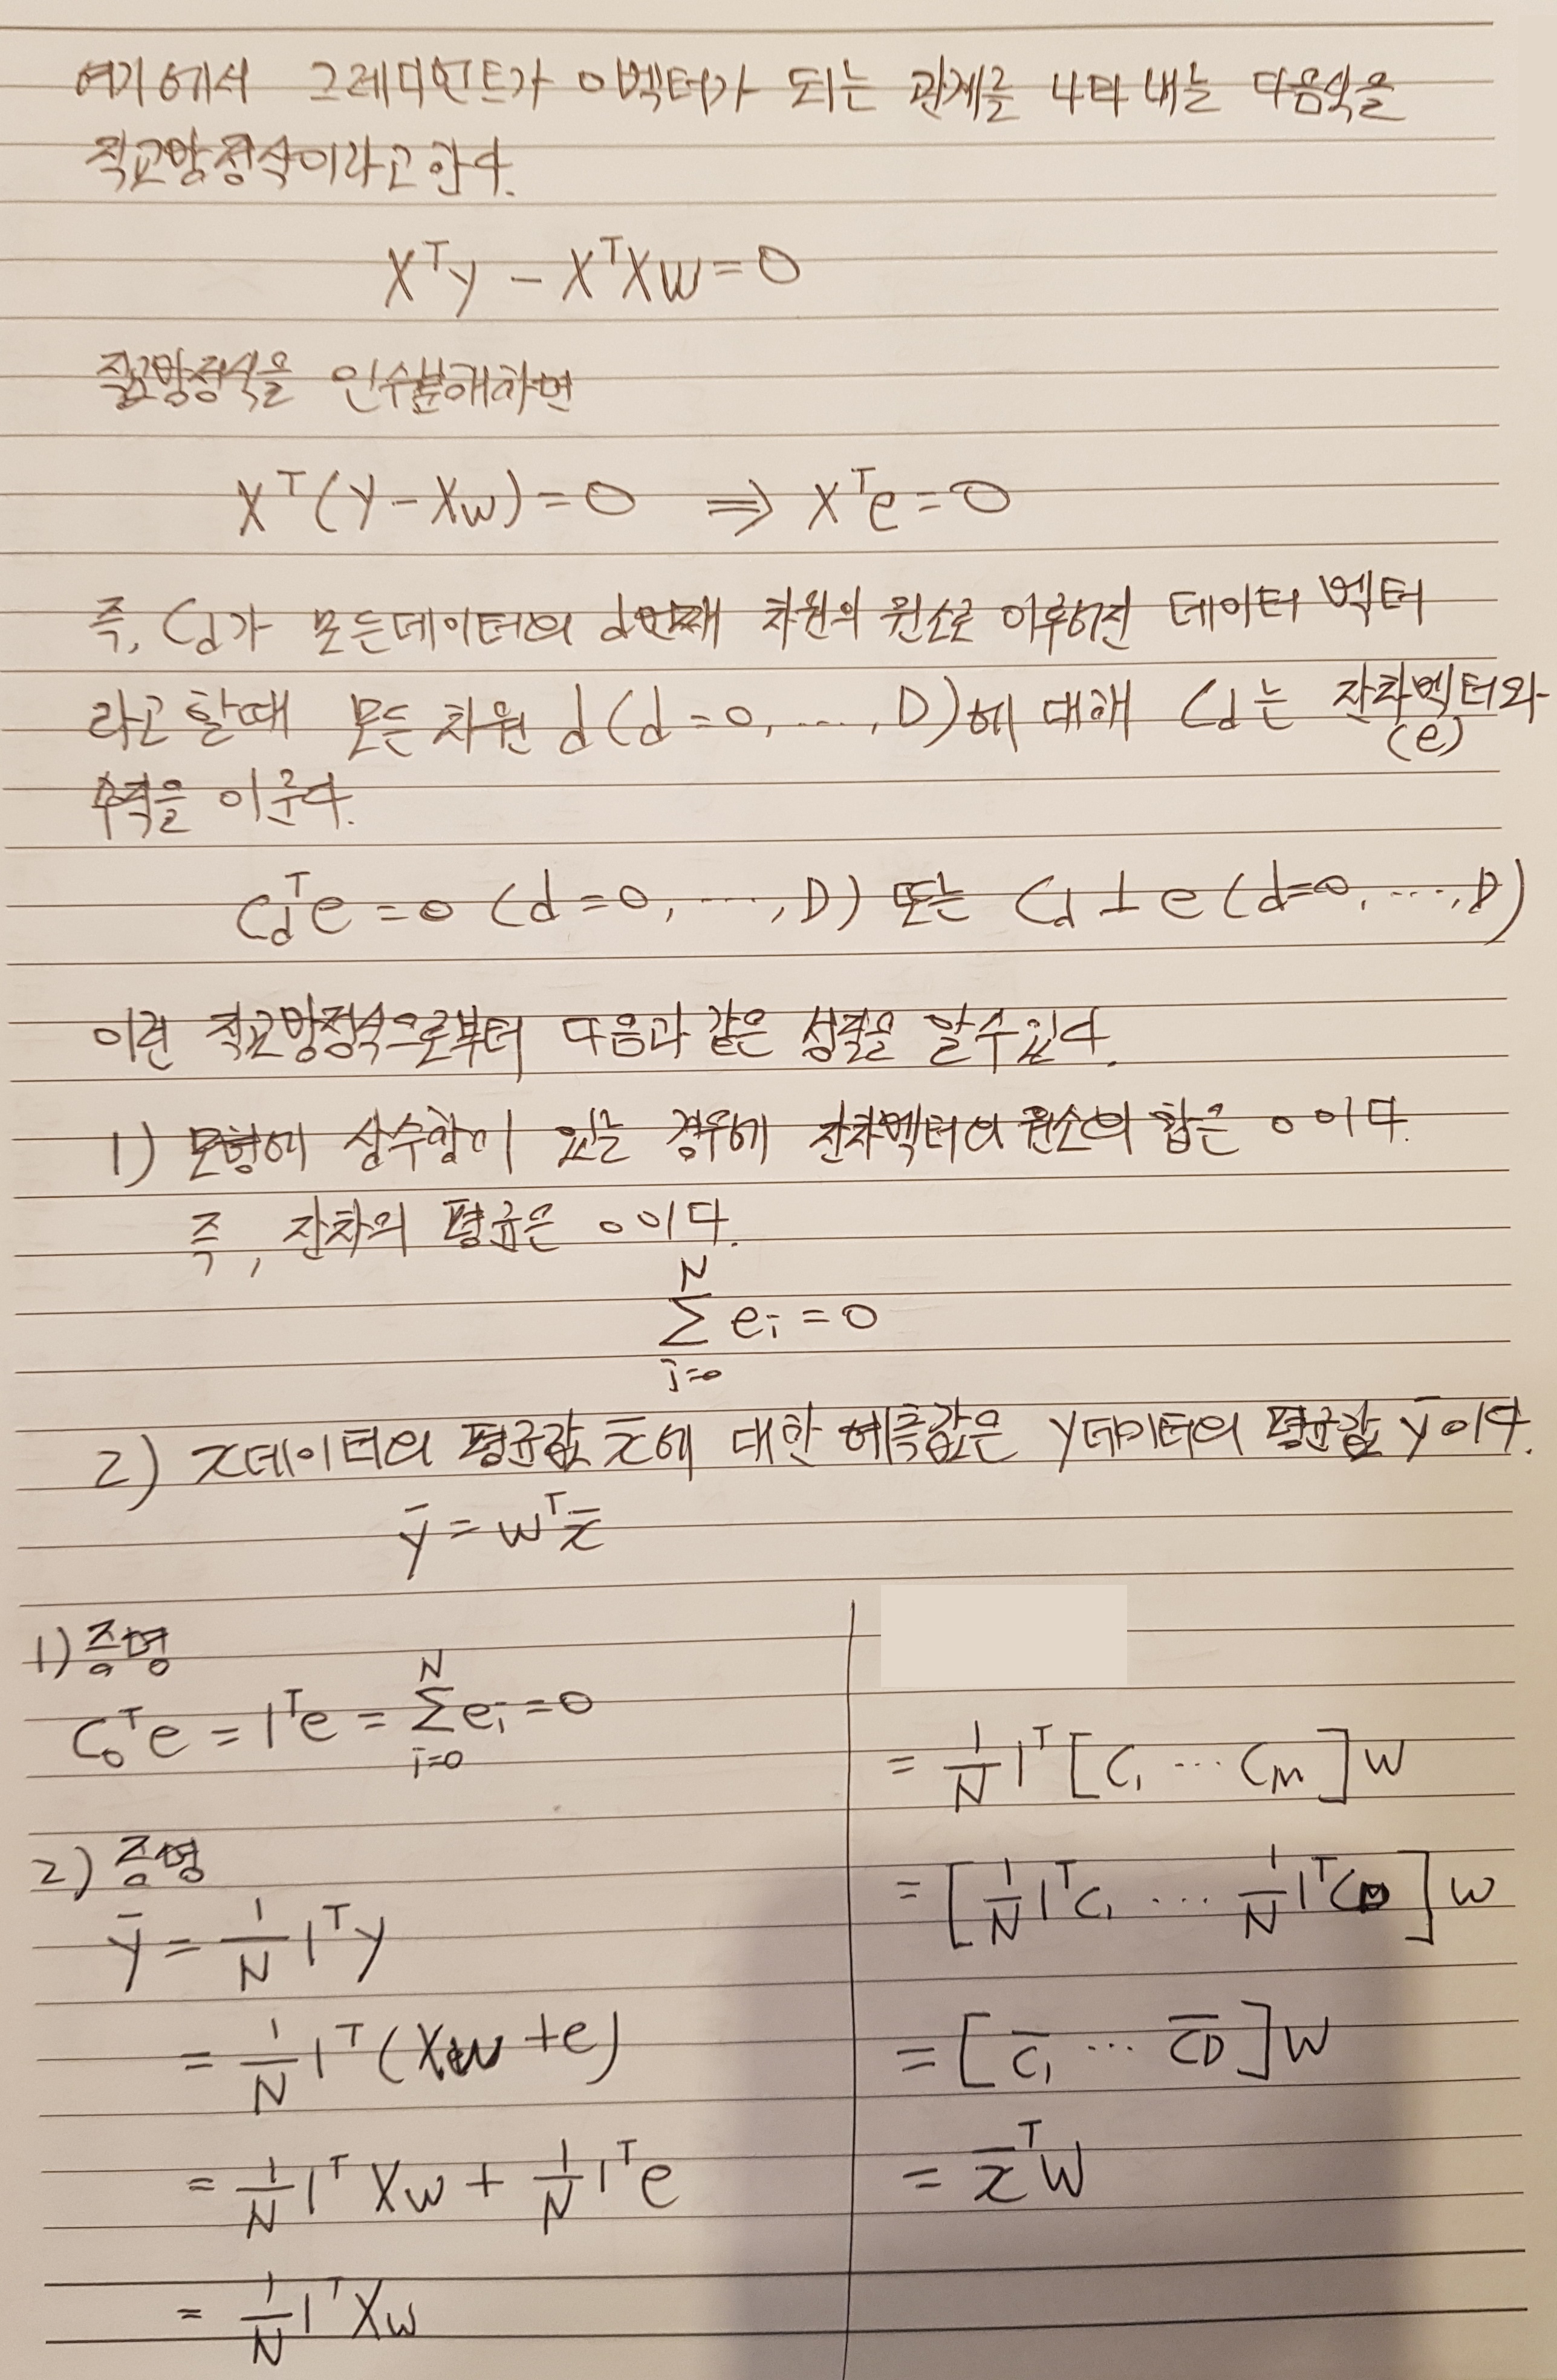 여기에서 그레디언트가 0벡터가 되는 관계를 나타내는 다음식을
직교방정식이라고 한다.
X^T y - X^T X w = 0
직교방정식을 인수분해하면
X^T (y - Xw) = 0 ⇒ X^T e = 0
즉, C_d가 모든데이터의 d번째 차원의 원소로 이루어진 데이터 벡터
라고 할때 모든 차원 d (d = 0, ..., D)에 대해 C_d는 잔차벡터와
(e)
수직을 이룬다.
C_d^T e = 0 (d = 0, ..., D) 또는 C_d ⊥ e (d = 0, ..., D)
이런 직교방정식으로부터 다음과 같은 성질을 알수있다.
1) 모형에 상수항이 있는 경우에 잔차벡터의 원소의 합은 0이다.
즉, 잔차의 평균은 0이다.
\sum_{i=0}^{N} e_i = 0
2) x데이터의 평균값 \bar{x}에 대한 예측값은 y데이터의 평균값 \bar{y}이다.
\bar{y} = w^T \bar{x}
1) 증명
C_0^T e = 1^T e = \sum_{i=0}^{N} e_i = 0
2) 증명
\bar{y} = \frac{1}{N} 1^T y
= \frac{1}{N} 1^T (Xw + e)
= \frac{1}{N} 1^T Xw + \frac{1}{N} 1^T e
= \frac{1}{N} 1^T Xw
= \frac{1}{N} 1^T [C_1 ... C_M] w
= [\frac{1}{N} 1^T C_1 ... \frac{1}{N} 1^T C_D] w
= [\bar{C_1} ... \bar{C_D}] w
= \bar{x}^T w